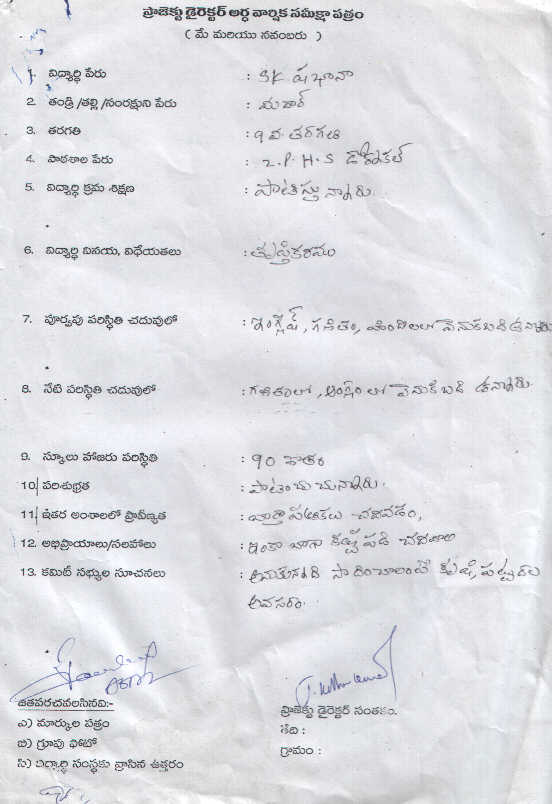 ప్రాజెక్టు డైరెక్టర్ అర్ధ వార్షిక సమీక్షా పత్రం
( మే మరియు నవంబరు )
1. విద్యార్థి పేరు : SK షభానా
2. తండ్రి /తల్లి /సంరక్షుని పేరు :
3. తరగతి : 9వ తరగతి
4. పాఠశాల పేరు : Z.P.H.S డోర్నకల్
5. విద్యార్థి క్రమ శిక్షణ : పాటిస్తున్నారు.
6. విద్యార్థి వినయ, విధేయతలు : తృప్తికరము
7. పూర్వపు పరిస్థితి చదువులో : ఇంగ్లీష్, గణితం, హిందీలలో వెనుకబడి ఉన్నారు
8. నేటి పరిస్థితి చదువులో : గణితంలో, ఆంగ్లం లో వెనుకబడి ఉన్నారు.
9. స్కూలు హాజరు పరిస్థితి : 90 శాతం
10. పరిశుభ్రత : పాటించుచున్నారు.
11. ఇతర అంశాలలో ప్రావీణ్యత : వార్తా పత్రికలు చదవడం,
12. అభిప్రాయాలు/సలహాలు : ఇంకా బాగా కష్టపడి చదవాలి
13. కమిటీ సభ్యుల సూచనలు : అనుకున్నది సాధించాలంటే కృషి, పట్టుదల
అవసరం.
జతపరచవలసినవి:-
ఎ) మార్కుల పత్రం
బి) గ్రూపు ఫోటో
సి) విద్యార్థి సంస్థకు వ్రాసిన ఉత్తరం
ప్రాజెక్టు డైరెక్టర్ సంతకం.
తేది :
గ్రామం :